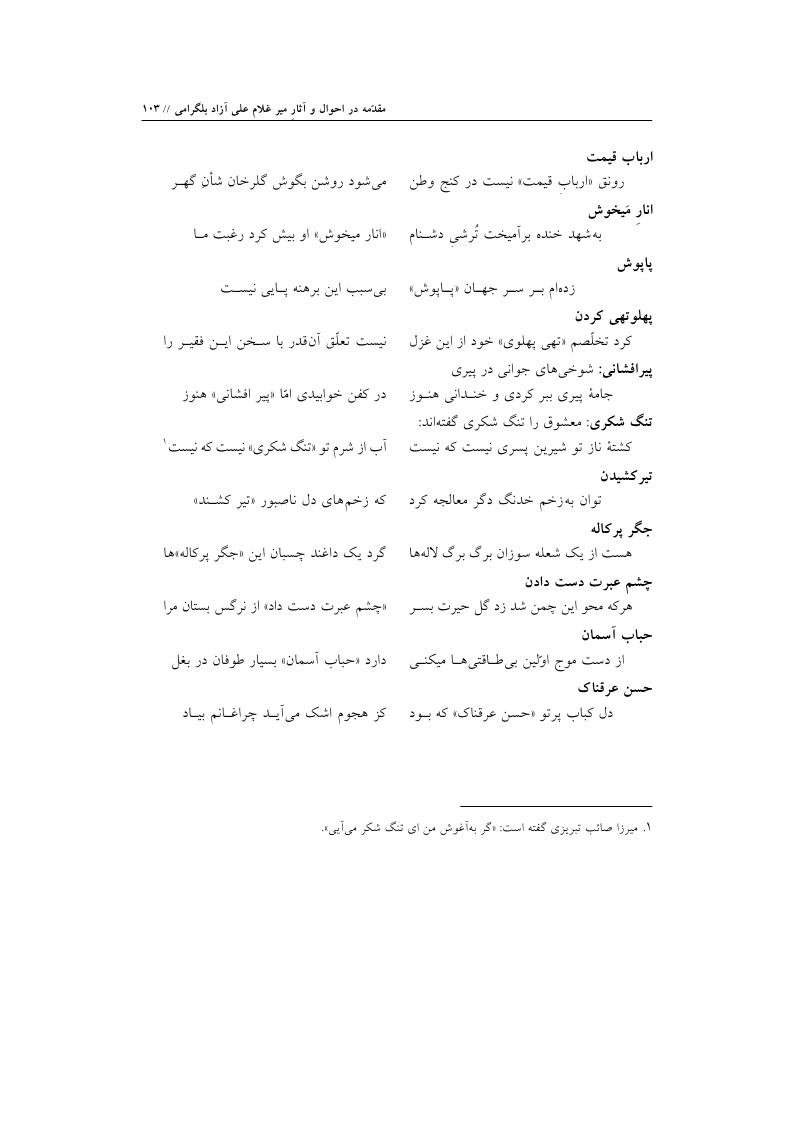 مقدّمه در احوال و آثارِ میر غلام علی آزاد بلگرامی // ۱۰۳
ارباب قیمت
رونق «اربابِ قیمت» نیست در کنج وطن می‌شود روشن بگوش گلرخان شأنِ گهـر
انارِ مَیخوش
به‌شهد خنده برآمیخت تُرشیِ دشـنام «انار میخوش» او بیش کرد رغبت مـا
پاپوش
زده‌ام بـر سـر جهـان «پـاپوش» بی‌سبب این برهنه پـایی نیسـت
پهلوتهی کردن
کرد تخلّصم «تهی پهلوی» خود از این غزل نیست تعلّق آن‌قدر با سـخن ایـن فقیـر را
پیرافشانی: شوخی‌های جوانی در پیری
جامهٔ پیری ببر کردی و خنـدانی هنـوز در کفن خوابیدی امّا «پیر افشانی» هنوز
تنگ شکری: معشوق را تنگ شکری گفته‌اند:
کشتهٔ ناز تو شیرین پسری نیست که نیست آب از شرم تو «تنگ شکری» نیست که نیست۱
تیرکشیدن
توان به‌زخم خدنگ دگر معالجه کرد که زخم‌های دل ناصبور «تیر کشـند»
جگر پرکاله
هست از یک شعله سوزان برگ برگ لاله‌ها گرد یک داغند چسبان این «جگر پرکاله»ها
چشم عبرت دست دادن
هرکه محو این چمن شد زد گل حیرت بسـر «چشم عبرت دست داد» از نرگس بستان مرا
حباب آسمان
از دست موج اوّلین بی‌طـاقتی‌هـا میکنـی دارد «حباب آسمان» بسیار طوفان در بغل
حسن عرقناک
دل کباب پرتو «حسن عرقناک» که بـود کز هجوم اشک می‌آیـد چراغـانم بیـاد
۱. میرزا صائب تبریزی گفته است: «گر به‌آغوش من ای تنگ شکر می‌آیی».